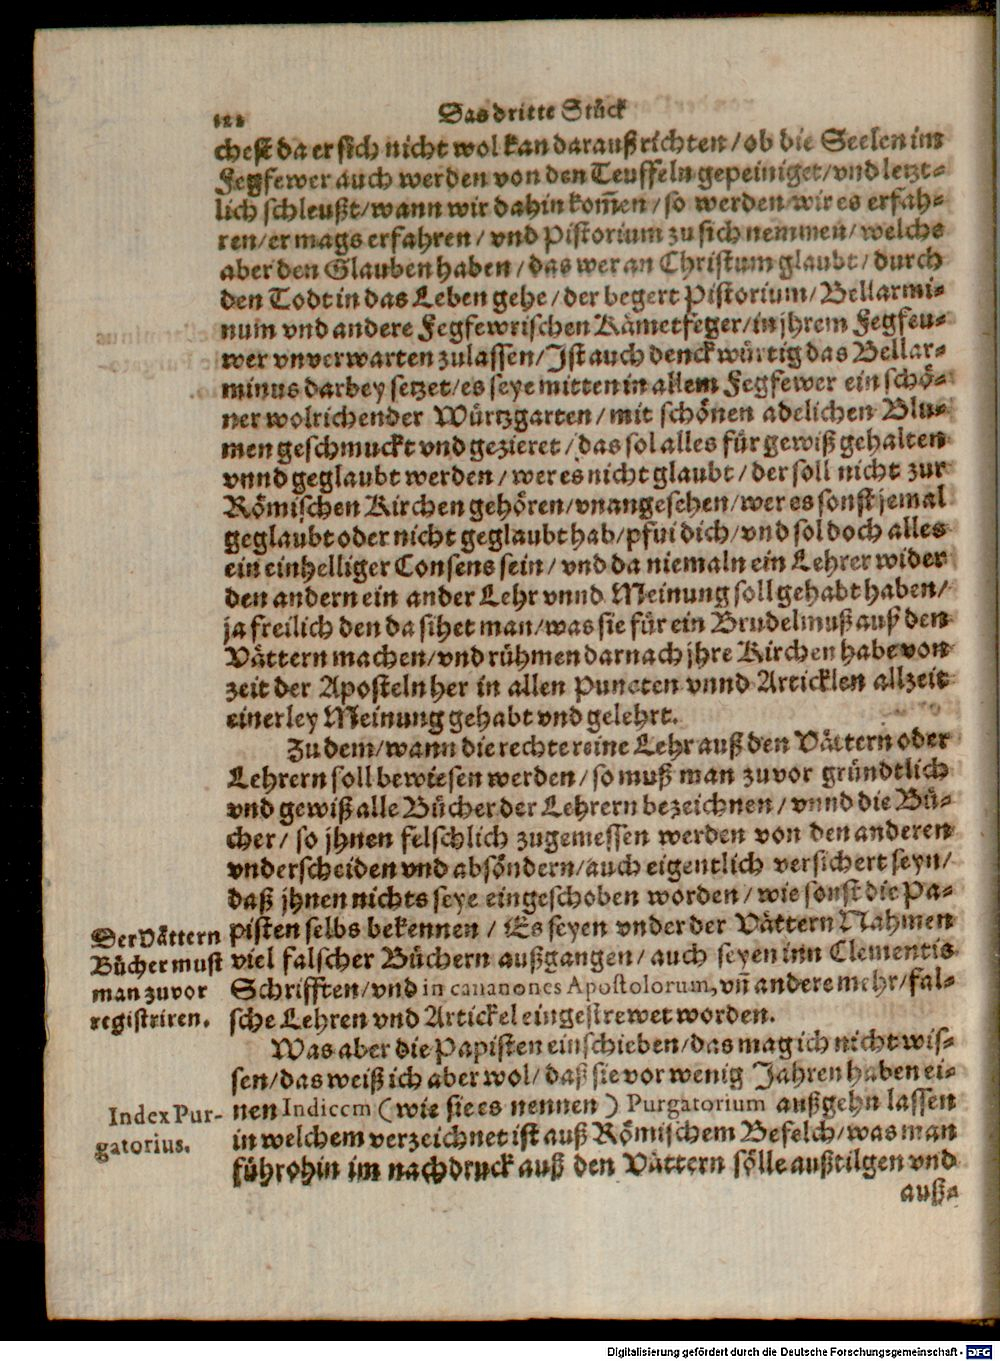 122
Das dritte Stück
chest da er sich nicht wol kan darauß richten / ob die Seelen im
Fegfewer auch werden von den Teuffeln gepeiniget / vnd letzt-
lich schleußt / wann wir dahin kom̄en / so werden wir es erfah-
ren / er mags erfahren / vnd Pistorium zu sich nemmen / welche
aber den Glauben haben / das wer an Christum glaubt / durch
den Todt in das Leben gehe / der begert Pistorium / Bellarmi-
num vnd andere Fegfewrischen Kämetfeger / in jhrem Fegfeu-
wer vnverwarten zulassen / Ist auch denckwürtig das Bellar-
minus darbey setzet / es seye mitten in allem Fegfewer ein schö-
ner wolrichender Würtzgarten / mit schönen adelichen Blu-
men geschmuckt vnd gezieret / das sol alles für gewiß gehalten
vnnd geglaubt werden / wer es nicht glaubt / der soll nicht zur
Römischen Kirchen gehören / vnangesehen / wer es sonst jemal
geglaubt oder nicht geglaubt hab / pfui dich / vnd sol doch alles
ein einhelliger Consens sein / vnd da niemaln ein Lehrer wider
den andern ein ander Lehr vnnd Meinung soll gehabt haben /
ja freilich den da sihet man / was sie für ein Brudelmuß auß den
Vättern machen / vnd rühmen darnach jhre Kirchen habe von
zeit der Aposteln her in allen Puncten vnnd Articklen allzeit
einerley Meinung gehabt vnd gelehrt.
Zu dem / wann die rechte reine Lehr auß den Vättern oder
Lehrern soll bewiesen werden / so muß man zuvor gründtlich
vnd gewiß alle Bücher der Lehrern bezeichnen / vnnd die Bü-
cher / so jhnen felschlich zugemessen werden von den anderen
vnderscheiden vnd absöndern / auch eigentlich versichert seyn /
daß jhnen nichts seye eingeschoben worden / wie sonst die Pa-
pisten selbs bekennen / Es seyen vnder der Vättern Nahmen
viel falscher Büchern außgangen / auch seyen inn Clementis
Schrifften / vnd in cananones Apostolorum, vn̄ andere mehr / fal-
sche Lehren vnd Artickel eingestrewet worden.
Der Vättern
Bücher must
man zuvor
registriren.
Was aber die Papisten einschieben / das mag ich nicht wis-
sen / das weiß ich aber wol / daß sie vor wenig Jahren haben ei-
nen Indicem (wie sie es nennen) Purgatorium außgehn lassen
in welchem verzeichnet ist auß Römischem Befelch / was man
führohin im nachdruck auß den Vättern sölle außtilgen vnd
Index Pur-
gatorius.
auß-
Digitalisierung gefördert durch die Deutsche Forschungsgemeinschaft - DFG